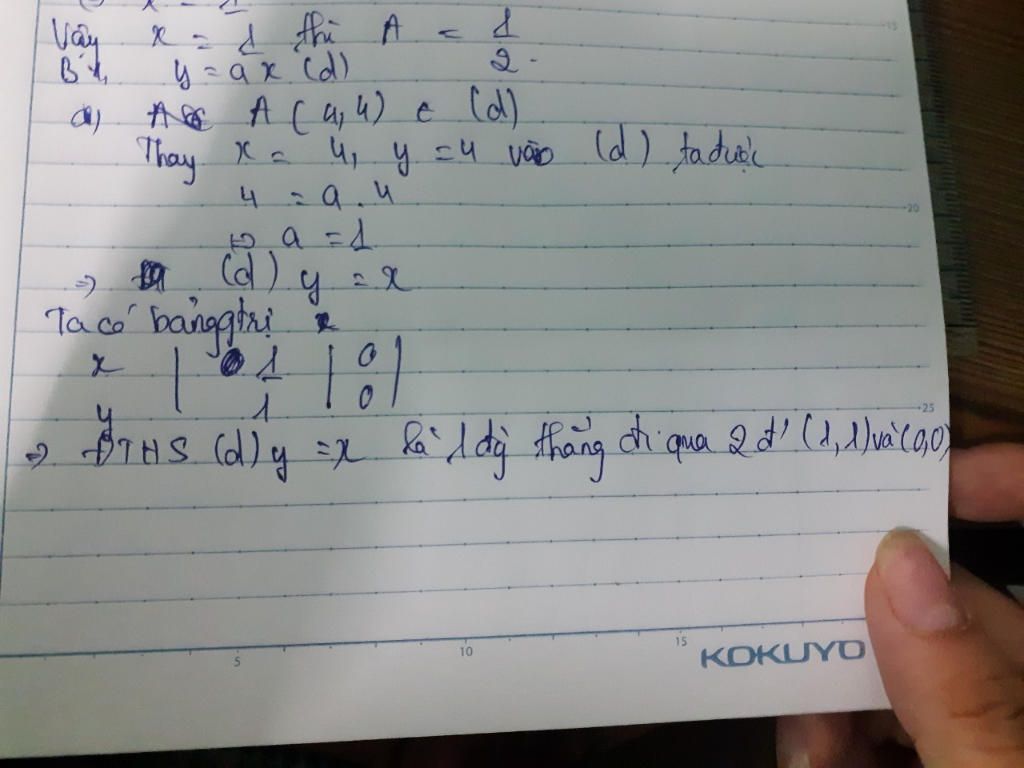 x = 1
Vậy x = 1 thì A = 1
2.
B y = ax (d)
a) A (4,4) ∈ (d)
Thay x = 4, y = 4 vào (d) ta được
4 = a . 4
⇔ a = 1
⇒ (d) y = x
Ta có bảng gtrị
x | 1 | 0 |
y 1 0
⇒ ĐTHS (d) y = x là 1 đg thẳng đi qua 2 đ' (1,1) và (0,0)
15
20
25
5 10 15
KOKUYO